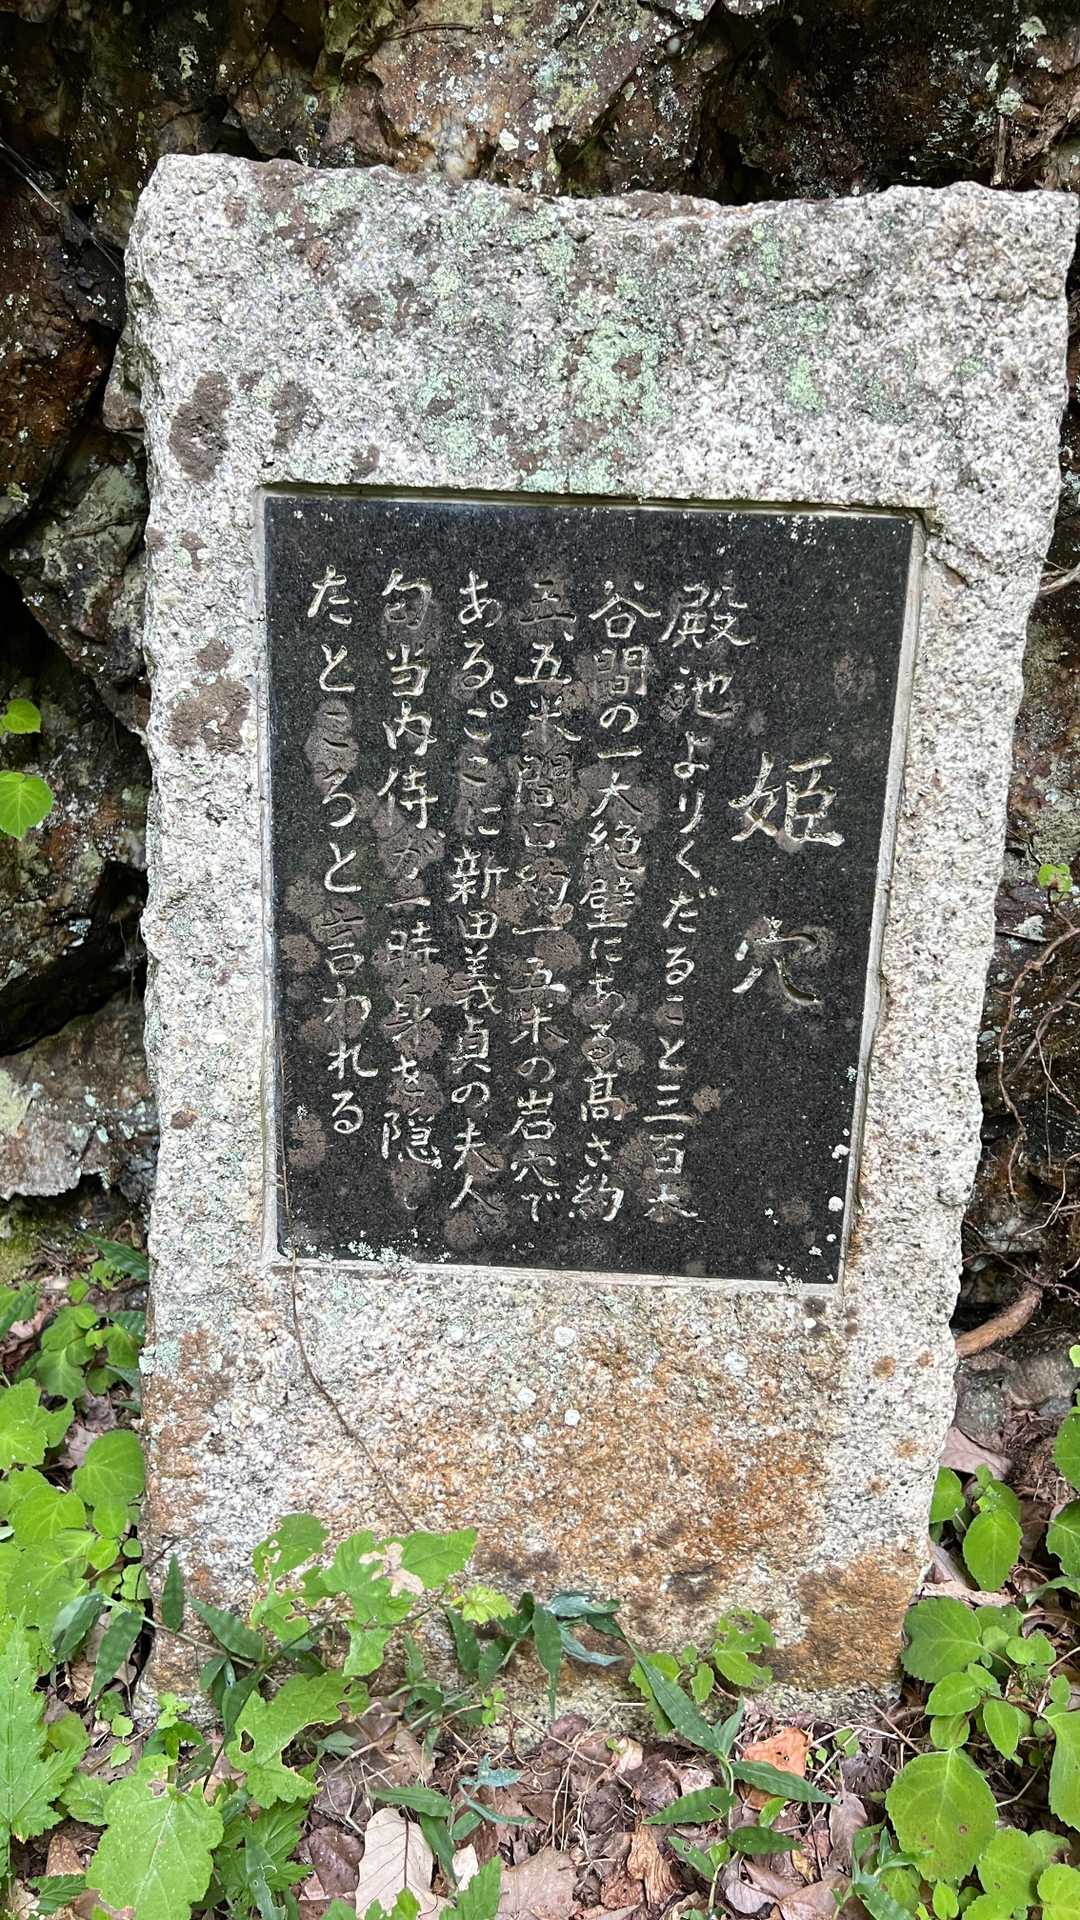 姫穴
殿池よりくだること三百米
谷間の一大絶壁にある高さ約
五、五米間口約一、五米の岩穴で
ある。ここに新田義貞の夫人
匂当内侍が一時身を隠し
たところと言われる